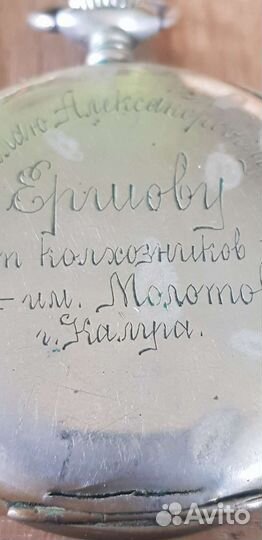 Александрович
Ершову
колхозников
им. Молотов
г. Калуга.
Avito